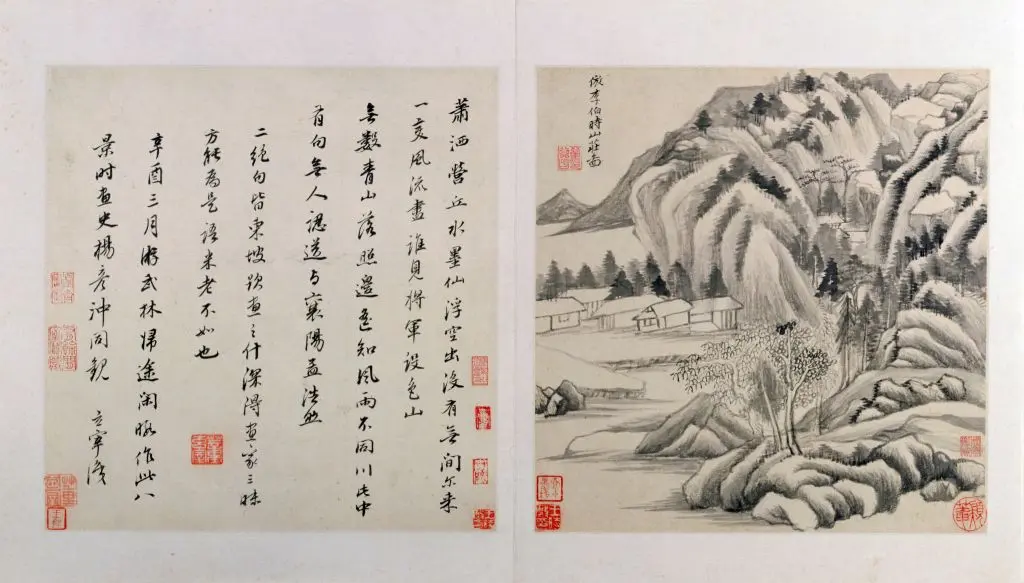 蕭洒營丘水墨仙浮空出沒有無間尔来
一変風流盡誰見將軍設色山
無數青山落照邊遥知風雨不同川此中
有句無人識送与襄陽孟浩然
二絕句皆東坡題畫之什深得畫家三昧
方能為是語米老不如也
辛酉三月游武林歸途闲暇作此八
景时畫史楊彦沖同觀 玄宰識
倣李伯時山莊啚